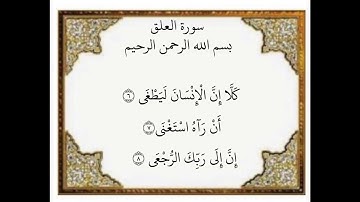 سورة العلق
بسم الله الرحمن الرحيم
كَلَّا إِنَّ الْإِنْسَانَ لَيَطْغَى ٦
أَنْ رَآهُ اسْتَغْنَى ٧
إِنَّ إِلَى رَبِّكَ الرُّجْعَى ٨